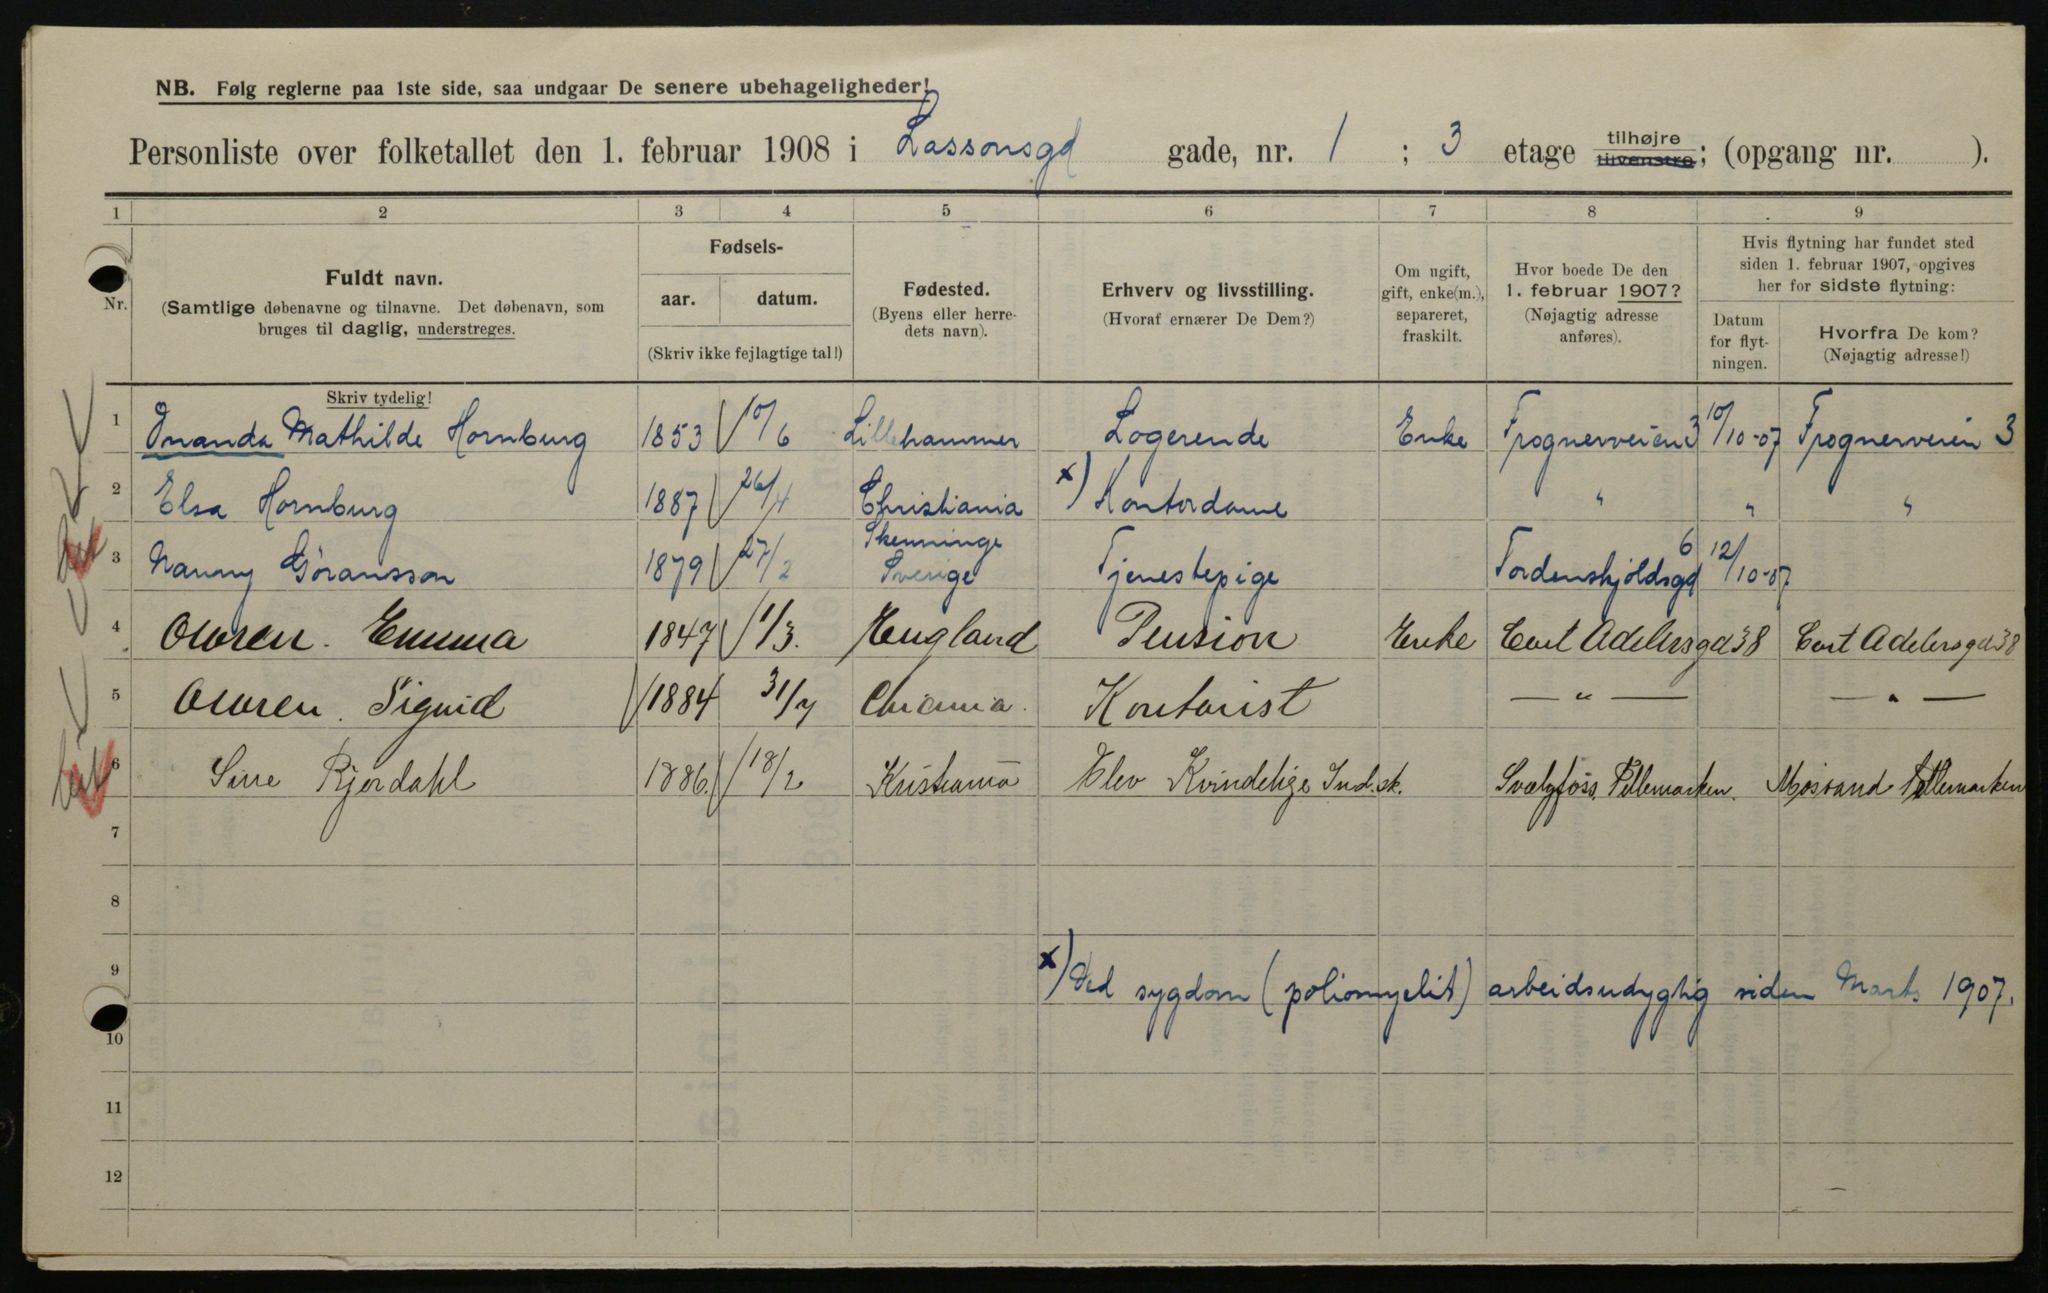 NB. Følg reglerne paa 1ste side, saa undgaar De senere ubehageligheder!
Personliste over folketallet den 1. februar 1908 i Lassonsgd gade, nr. 1 ; 3 etage tilhøjre tilvenstre; (opgang nr. ).
1 2 3 4 5 6 7 8 9
Nr.
Fuldt navn.
(Samtlige døbenavne og tilnavne. Det døbenavn, som
bruges til daglig, understreges.
Skriv tydelig!
Fødsels-
aar. datum.
(Skriv ikke fejlagtige tal!)
Fødested.
(Byens eller herre-
dets navn).
Erhverv og livsstilling.
(Hvoraf ernærer De Dem?)
Om ugift,
gift, enke(m.),
separeret,
fraskilt.
Hvor boede De den
1. februar 1907?
(Nøjagtig adresse
anføres).
Hvis flytning har fundet sted
siden 1. februar 1907, opgives
her for sidste flytning:
Datum
for flyt-
ningen.
Hvorfra De kom?
(Nøjagtig adresse!)
1 Mathilde Hornburg 1853 10/6 Lillehammer Logerende Enke Frognerveien 3 10/10-07 Frognerveien 3
2 Elsa Hornburg 1887 26/4 Christiania x) Kontordame " " "
3 Nanny Göransson 1879 27/2 Skenninge Sverige Tjenestepige Tordenskjoldsgd 6 12/10-07
4 Owren. Emma 1847 1/3. England Pension Enke Cort Adelersgd 38 Cort Adelersgd 38
5 Owren. Sigrid 1884 31/7 Chr.ania. Kontorist — " — — " —
6 Sine 1886. 18/2 Kristiania Elev Kvindelige Ind.sk. Svælgfoss Tellemarken. Tellemarken
7
8
9
x) Ved sygdom (poliomyelit) arbeidsudygtig siden Marts 1907.
10
11
12